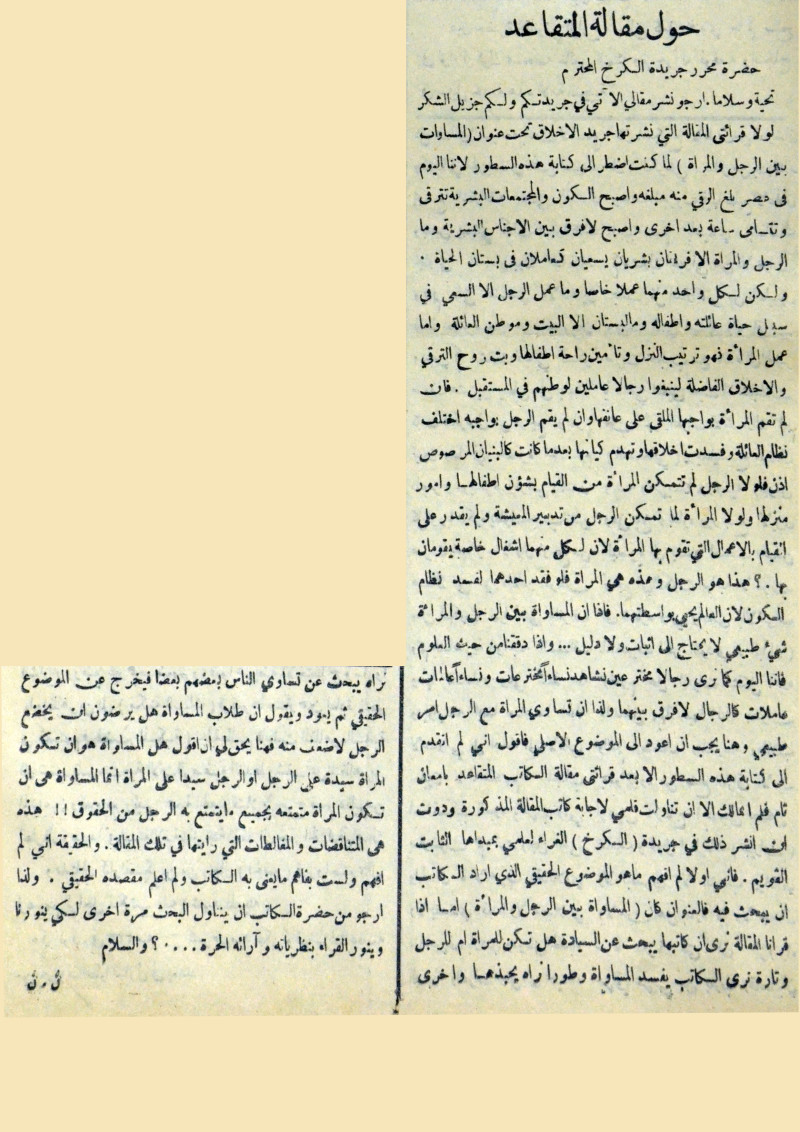 حول مقالة المتقاعد
حضرة محرر جريدة الكرخ المحترم
تحية وسلاما . ارجو نشر مقالي الآتي في جريدتكم ولكم جزيل الشكر
لولا قرائتي المقالة التي نشرتها جريد الاخلاق تحت عنوان (المساوات
بين الرجل والمراة ) لما كنت اضطر الى كتابة هذه السطور لاننا اليوم
في عصر بلغ الرقي منه مبلغه واصبح الكون والمجتمعات البشرية تترقى
وتتسامى ساعة بعد اخرى واصبح لافرق بين الاجناس البشرية وما
الرجل والمراة الا فردان بشريان يسعيان كعاملان في بستان الحياة .
ولكن لكل واحد منهما عملا خاصا وما عمل الرجل الا السعي في
سبيل حياة عائلته واطفاله وما البستان الا البيت وموطن العائلة واما
عمل المرأة فهو ترتيب المنزل وتأمين راحة اطفالها وبث روح الترقي
والاخلاق الفاضلة لينبغوا رجالا عاملين لوطنهم في المستقبل . فان
لم تقم المرأة بواجبها الملقى على عاتقها وان لم يقم الرجل بواجبه اختلف
نظام العائلة وفسدت اخلاقها وتهدم كيانها بعدما كانت كالبنيان المرصوص
اذن فلولا الرجل لم تتمكن المرأة من القيام بشؤن اطفالها وامور
منزلها ولولا المرأة لما تمكن الرجل من تدبير المعيشة ولم يقدر على
القيام بالاعمال التي تقوم بها المرأة لان لكل منهما اشغال خاصة يقومان
بها . ؟ هذا هو الرجل وهذه هي المراة فلو فقد احدهما لفسد نظام
الكون لان العالم يحيى بواسطتهما. فاذا ان المساواة بين الرجل والمرأة
شيء طبيعي لا يحتاج الى اثبات ولا دليل ... واذا دققنا من حيث العلوم
فاننا اليوم كما نرى رجالا مخترعين نشاهد نساءً مخترعات ونساءً عالمات
عاملات كالرجال لافرق بينهما ولذا ان تساوي المراة مع الرجل امر
طبيعي وهنا يجب ان اعود الى الموضوع الاصلي فاقول اني لم اتقدم
الى كتابة هذه السطور الا بعد قرائتي مقالة الكاتب المتقاعد بامعان
تام فلم اتمالك الا ان تناولت قلمي لاجابة كاتب المقالة المذكورة وودت
ان انشر ذلك في جريدة ( الكرخ ) الغراء لعلمي بمبداها الثابت
القويم . فاني اولا لم افهم ماهو الموضوع الحقيقي الذي اراد الكاتب
ان يبحث فيه فالعنوان كان ( المساواة بين الرجل والمرأة ) اما اذا
قرانا المقالة نرى ان كاتبها يبحث عن السيادة هل تكن للمراة ام للرجل
وتارة نرى الكاتب يفسد المساواة وطورا نراه يحبذهـا واخرى
نراه يبحث عن تساوي الناس بعضهم بعضا فيخرج عن الموضوع
الحقيقي ثم يعود ويقول ان طلاب المساواة هل يرضون ان يخضع
الرجل لاضعف منه فهنا يحق لي ان اقول هل المساواة هو ان تكون
المراة سيدة على الرجل او الرجل سيدا على المراة انما المساواة هي ان
تكون المراة متمتعه بجميع مايتمتع به الرجل من الحقوق !! هذه
هي المتناقضات والمغالطات التي رايتها في تلك المقالة . والحقيقة اني لم
افهم ولست بفاهم مايعني به الكاتب ولم اعلم مقصده الحقيقي . ولذا
ارجو من حضرة الكاتب ان يتناول البحث مرة اخرى لكي ينورنا
وينور القراء بنظرياته وآرائه الحرة .... ؟ والسلام
ن . ن